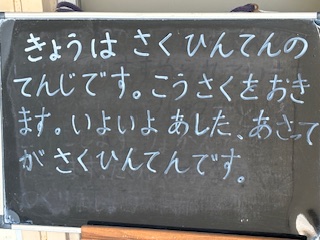 きょうは さくひんてんの
てんじです。こうさくをおき
ます。いよいよ あした、あさって
が さくひんてんです。